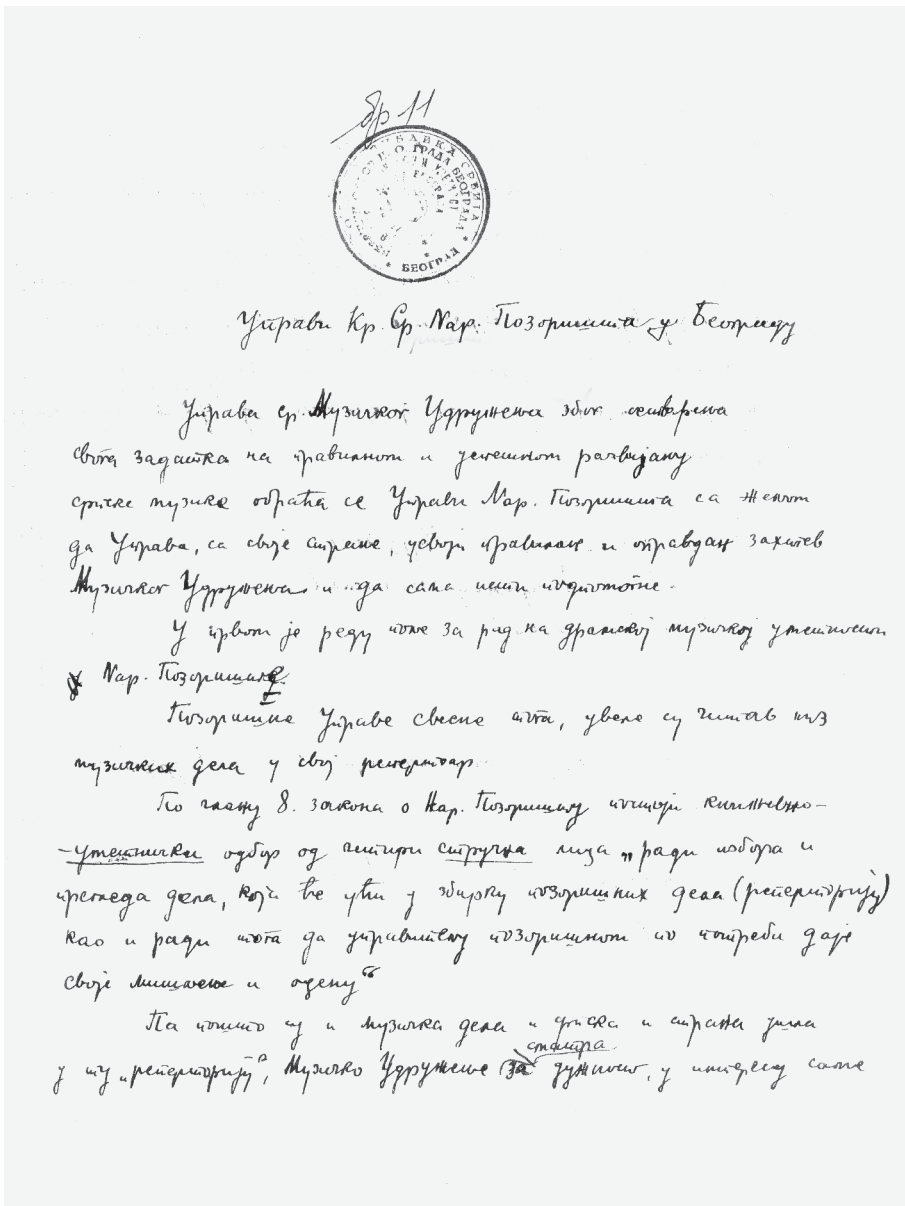 бр 11
БЕОГРАД
Управи Кр. Ср. Nар. Позоришта у Београду
Управа ср. Музичког Удружења због остварења
свога задатка на правилном и успешном развијању
српске музике обраћа се Управи Nар. Позоришта са жељом
да Управа, са своје стране, усвоји правилан и оправдан захтев
Музичког Удружења и да сама
У првом је реду за рад на драмској музичкој уметности
у Nар. Позоришту.
Позоришне Управе свесне тога, увеле су читав низ
музичких дела у свој репертоар
По члану 8. закона о Нар. Позоришту постоји књижевно-
-уметнички одбор од четири стручна лица „ради избора и
прегледа дела, која ће ући у збирку позоришних дела (реперторију)
као и ради тога да управитељу позоришном по потреби даје
своје мишљење и оцену“
Па пошто су и музичка дела и српска и страна ушла
сматра
у ту „реперторију“, Музичко Удружење за дужност, у интересу саме